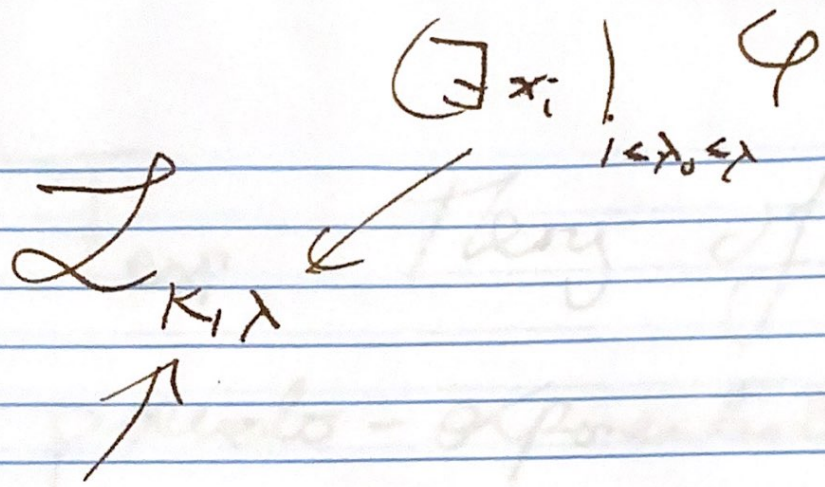 (∃ x_i)_{i<λ_0<λ} φ
L_{κ,λ}